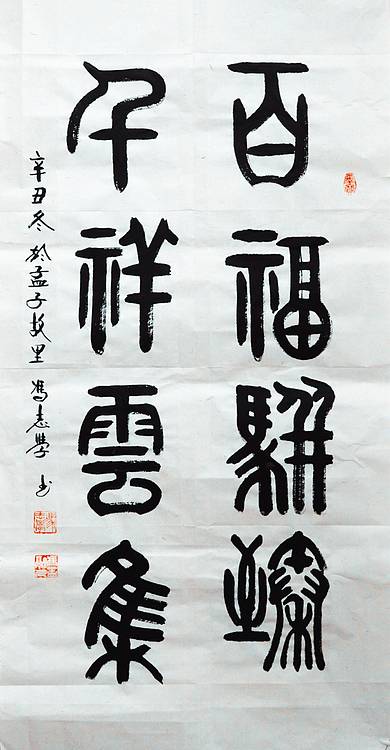 百福骈臻
千祥雲集
辛丑冬於孟子故里馮志學书